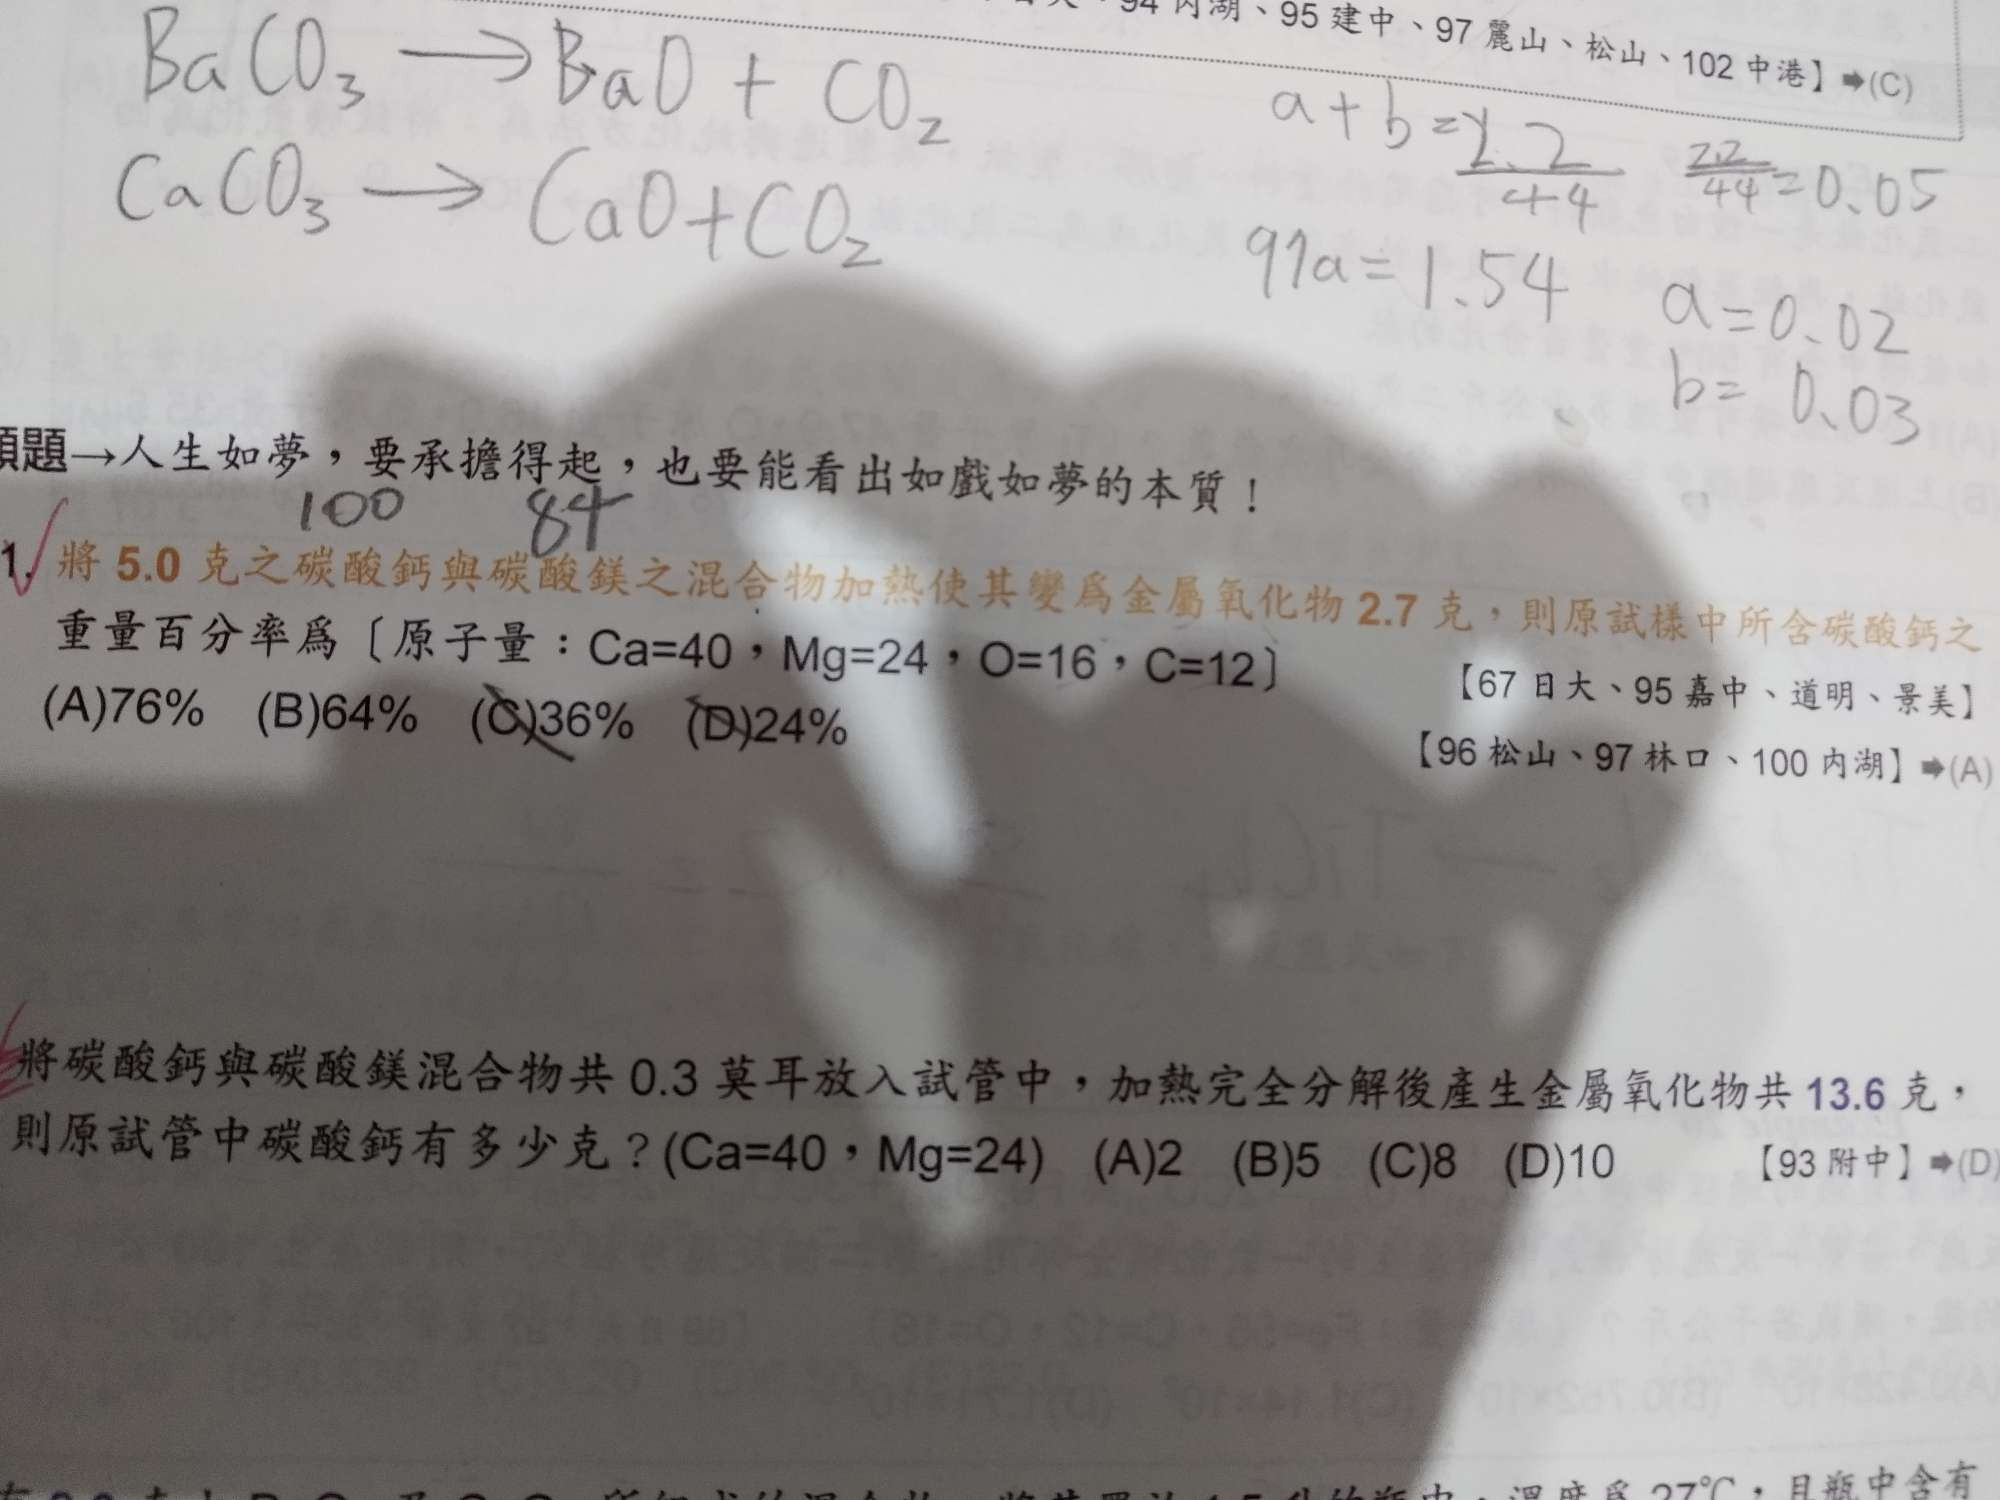 94 內湖、95 建中、97 麗山、松山、102 中港】➡(C)
BaCO₃ → BaO + CO₂
CaCO₃ → CaO + CO₂
a + b = 2.2/44 2.2/44 = 0.05
97a = 1.54
a = 0.02
b = 0.03
題→人生如夢,要承擔得起,也要能看出如戲如夢的本質!
100 84
1. 將 5.0 克之碳酸鈣與碳酸鎂之混合物加熱使其變爲金屬氧化物 2.7 克,則原試樣中所含碳酸鈣之
重量百分率爲〔原子量:Ca=40,Mg=24,O=16,C=12〕
【67 日大、95 嘉中、道明、景美】
(A)76% (B)64% (C)36% (D)24%
【96 松山、97 林口、100 內湖】➡(A)
將碳酸鈣與碳酸鎂混合物共 0.3 莫耳放入試管中,加熱完全分解後產生金屬氧化物共 13.6 克,
則原試管中碳酸鈣有多少克?(Ca=40,Mg=24) (A)2 (B)5 (C)8 (D)10 【93 附中】➡(D)
溫度爲 27℃,且瓶中含有